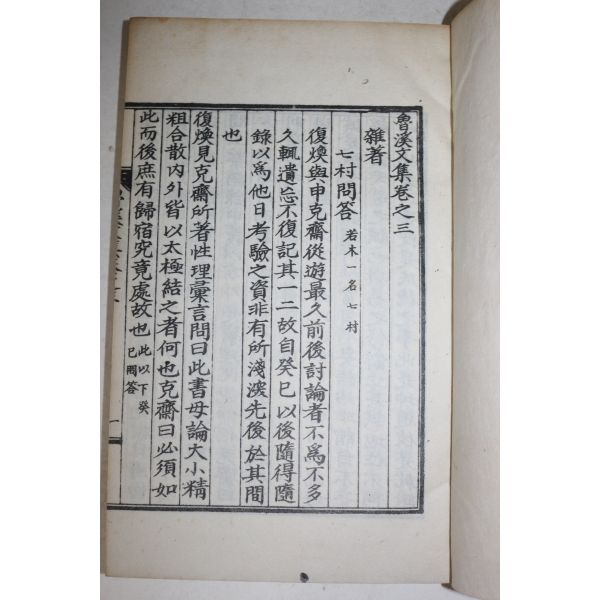 魯溪文集卷之三
雜著
七村問答 若木一名七村
復煥與申克齋從遊最久前後討論者不爲不多
久輒遺忘不復記其一二故自癸巳以後隨得隨
錄以爲他日考驗之資非有所淺深先後於其間
也
復煥見克齋所著性理彙言問曰此書毋論大小精
粗合散內外皆以太極結之者何也克齋曰必須如
此而後庶有歸宿究竟處故也 此以下癸
巳問答